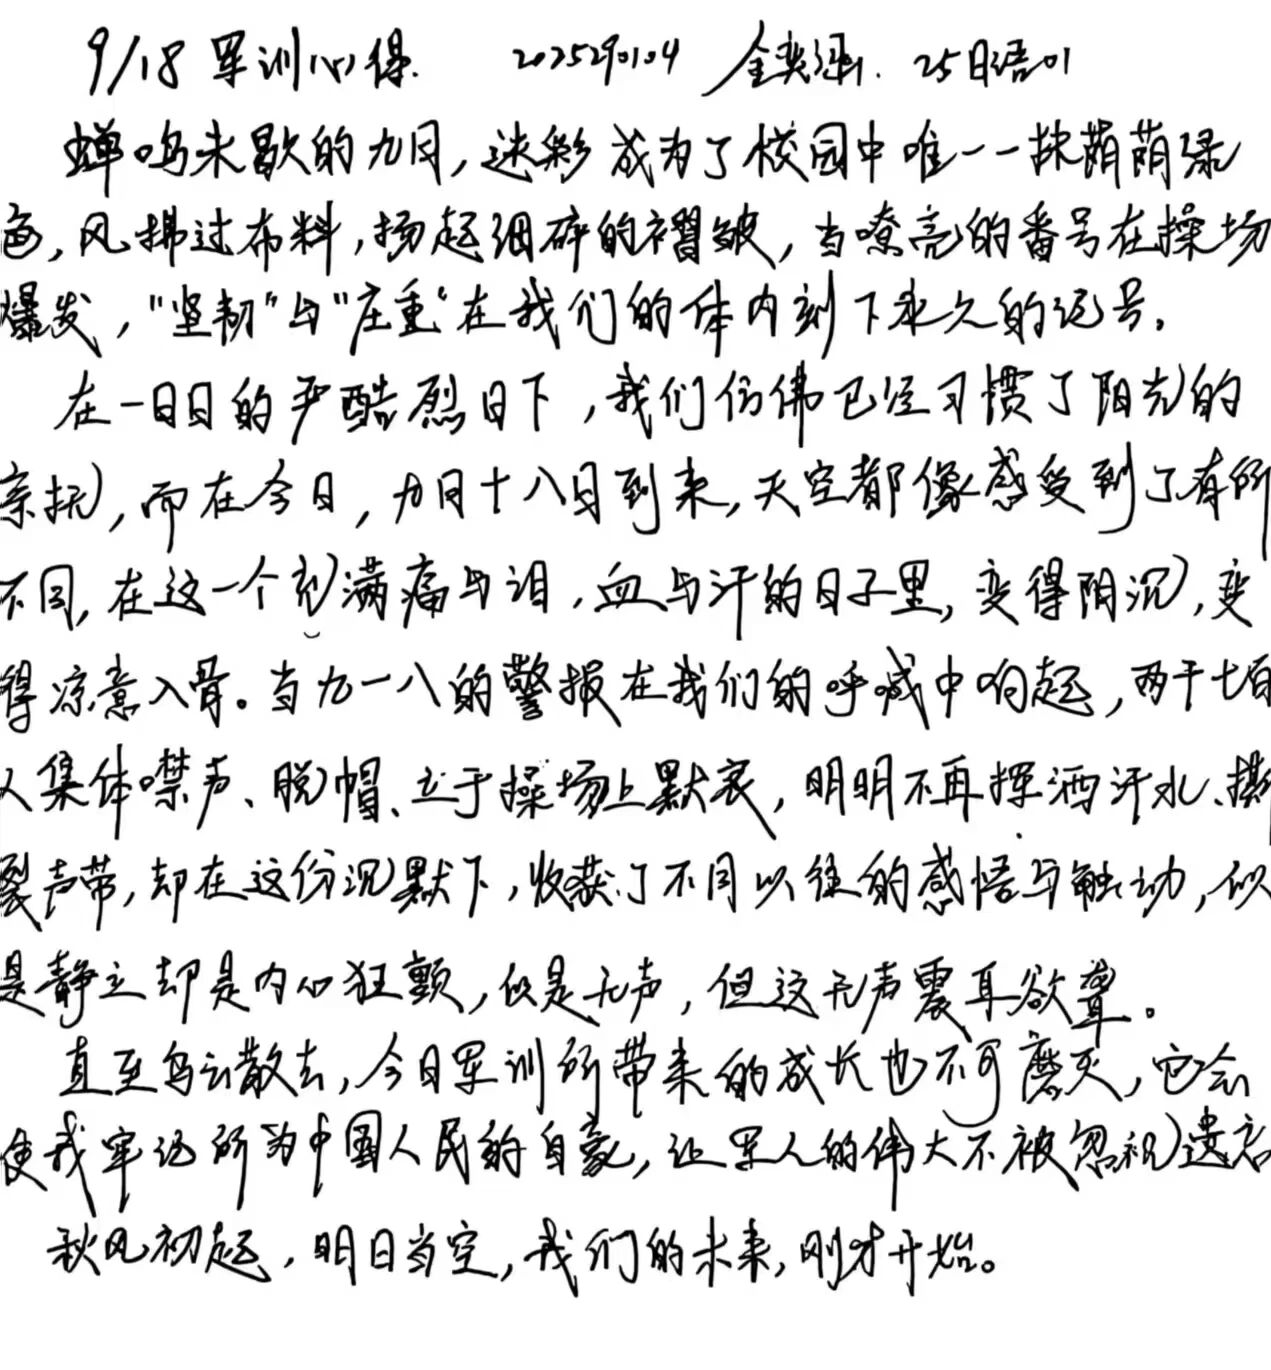 9/18 军训心得. 2025290104 金奕涵. 25日语01
蝉鸣未歇的九月,迷彩成为了校园中唯一一抹荫荫绿
色,风拂过布料,扬起细碎的褶皱,当嘹亮的番号在操场
爆发,"坚韧"与"庄重"在我们的体内刻下永久的记号。
在一日日的严酷烈日下,我们仿佛已经习惯了阳光的
亲抚,而在今日,九月十八日到来,天空都像感受到了有所
不同,在这一个充满痛与泪,血与汗的日子里,变得阴沉,变
得凉意入骨。当九一八的警报在我们的呼喊中响起,两千七百
人集体噤声、脱帽、立于操场上默哀,明明不再挥洒汗水、撕
裂声带,却在这份沉默下,收获了不同以往的感悟与触动,似
是静立却是内心狂颤,似是无声,但这无声震耳欲聋。
直至乌云散去,今日军训所带来的成长也不可磨灭,它会
使我牢记所为中国人民的自豪,让军人的伟大不被忽视遗忘
秋风初起,明日当空,我们的未来,刚才开始。